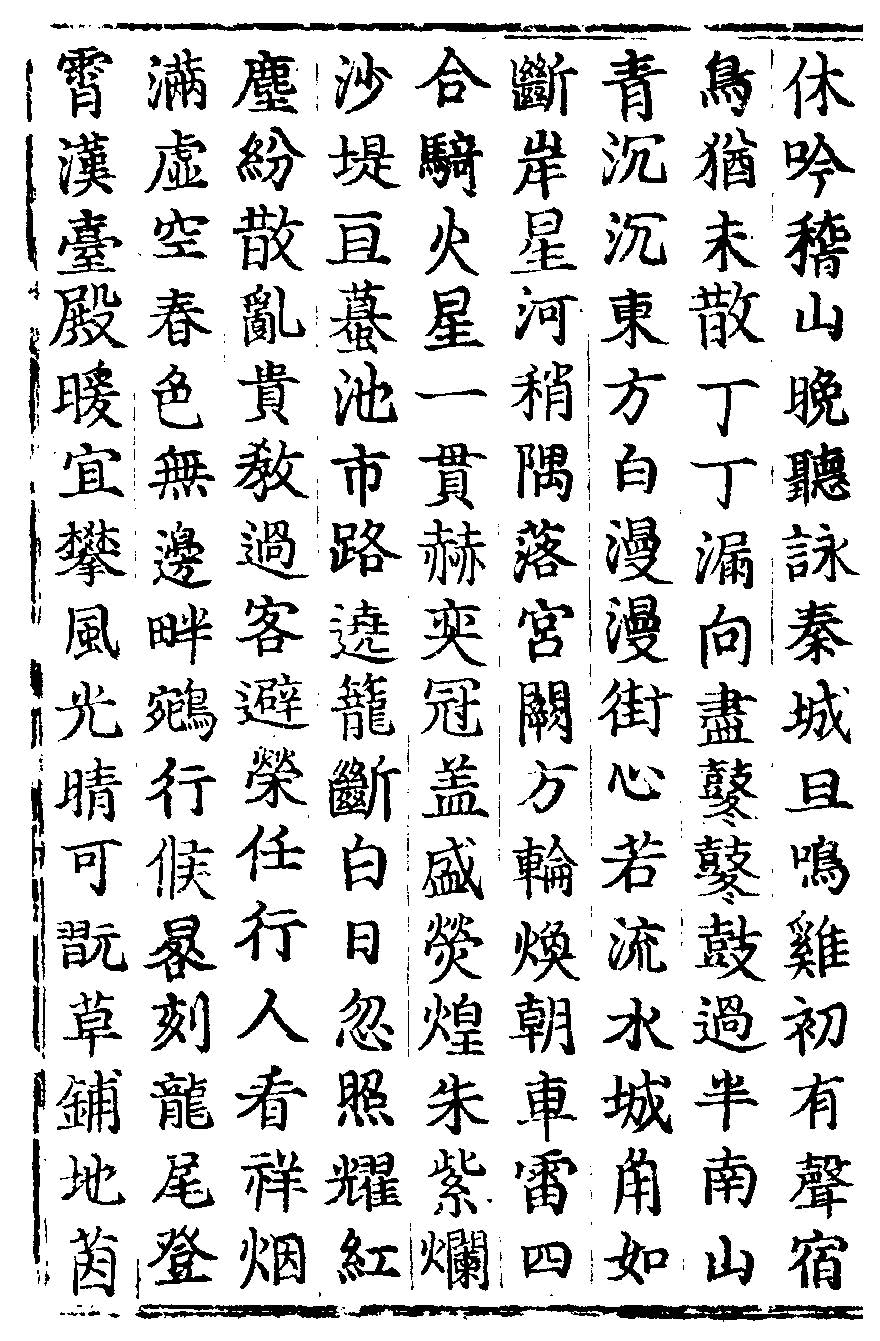 休吟稽山晚聽詠秦城旦鳴雞初有聲宿
鳥猶未散丁丁漏向盡鼕鼕鼓過半南山
青沉沉東方白漫漫街心若流水城角如
斷岸星河稍隅落宮闕方輪煥朝車雷四
合騎火星一貫赫奕冠盖盛熒煌朱紫爛
沙堤亘蟇池市路遶籠斷白日忽照耀紅
塵紛散亂貴教過客避榮任行人看祥烟
滿虛空春色無邊畔鵷行候晷刻龍尾登
霄漢臺殿暖宜攀風光晴可翫草鋪地茵